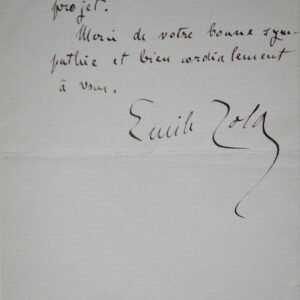 projet.
Merci de votre bonne sym-
pathie et bien cordialement
à vous.
Emile Zola